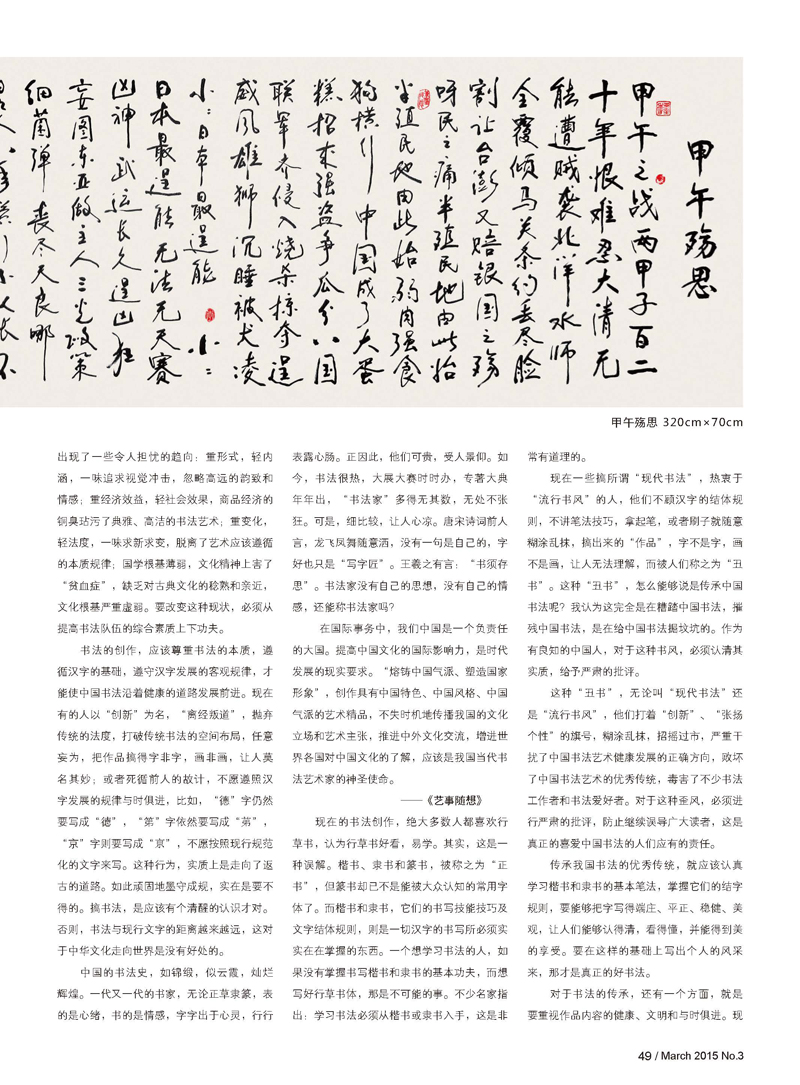 甲午殇思
甲午之战两甲子百二
十年恨难忍大清无
能遭贼袭北洋水师
全覆倾马关条约丢尽脸
割让台澎又赔银国之殇
呀民之痛半殖民地由此始
半殖民地由此始弱肉强食
狗横行中国成了大蛋
糕招来强盗争瓜分八国
联军齐侵入烧杀掠夺逞
威风雄狮沉睡被犬凌
小:日本最逞能 小:
日本最逞能无法无天赛
凶神武运长久逞凶狂
妄图东亚做主人三光政策
细菌弹丧尽天良哪
甲午殇思 320cm×70cm
出现了一些令人担忧的趋向：重形式，轻内
涵，一味追求视觉冲击，忽略高远的韵致和
情感；重经济效益，轻社会效果，商品经济的
铜臭玷污了典雅、高洁的书法艺术；重变化，
轻法度，一味求新求变，脱离了艺术应该遵循
的本质规律；国学根基薄弱，文化精神上害了
“贫血症”，缺乏对古典文化的稔熟和亲近，
文化根基严重虚弱。要改变这种现状，必须从
提高书法队伍的综合素质上下功夫。
书法的创作，应该尊重书法的本质，遵
循汉字的基础，遵守汉字发展的客观规律，才
能使中国书法沿着健康的道路发展前进。现在
有的人以“创新”为名，“离经叛道”，抛弃
传统的法度，打破传统书法的空间布局，任意
妄为，把作品搞得字非字，画非画，让人莫
名其妙；或者死循前人的故计，不愿遵照汉
字发展的规律与时俱进，比如，“德”字仍然
要写成“徳”，“第”字依然要写成“苐”，
“京”字则要写成“亰”，不愿按照现行规范
化的文字来写。这种行为，实质上是走向了返
古的道路。如此顽固地墨守成规，实在是要不
得的。搞书法，是应该有个清醒的认识才对。
否则，书法与现行文字的距离越来越远，这对
于中华文化走向世界是没有好处的。
中国的书法史，如锦缎，似云霞，灿烂
辉煌。一代又一代的书家，无论正草隶篆，表
的是心绪，书的是情感，字字出于心灵，行行
表露心肠。正因此，他们可贵，受人景仰。如
今，书法很热，大展大赛时时办，专著大典
年年出，“书法家”多得无其数，无处不张
狂。可是，细比较，让人心凉。唐宋诗词前人
言，龙飞凤舞随意洒，没有一句是自己的，字
好也只是“写字匠”。王羲之有言：“书须存
思”。书法家没有自己的思想，没有自己的情
感，还能称书法家吗?
在国际事务中，我们中国是一个负责任
的大国。提高中国文化的国际影响力，是时代
发展的现实要求。“熔铸中国气派、塑造国家
形象”，创作具有中国特色、中国风格、中国
气派的艺术精品，不失时机地传播我国的文化
立场和艺术主张，推进中外文化交流，增进世
界各国对中国文化的了解，应该是我国当代书
法艺术家的神圣使命。
——《艺事随想》
现在的书法创作，绝大多数人都喜欢行
草书，认为行草书好看，易学。其实，这是一
种误解。楷书、隶书和篆书，被称之为“正
书”，但篆书却已不是能被大众认知的常用字
体了。而楷书和隶书，它们的书写技能技巧及
文字结体规则，则是一切汉字的书写所必须实
实在在掌握的东西。一个想学习书法的人，如
果没有掌握书写楷书和隶书的基本功夫，而想
写好行草书体，那是不可能的事。不少名家指
出：学习书法必须从楷书或隶书入手，这是非
常有道理的。
现在一些搞所谓“现代书法”，热衷于
“流行书风”的人，他们不顾汉字的结体规
则，不讲笔法技巧，拿起笔，或者刷子就随意
糊涂乱抹，搞出来的“作品”，字不是字，画
不是画，让人无法理解，而被人们称之为“丑
书”。这种“丑书”，怎么能够说是传承中国
书法呢？我认为这完全是在糟踏中国书法，摧
残中国书法，是在给中国书法掘坟坑的。作为
有良知的中国人，对于这种书风，必须认清其
实质，给予严肃的批评。
这种“丑书”，无论叫“现代书法”还
是“流行书风”，他们打着“创新”、“张扬
个性”的旗号，糊涂乱抹，招摇过市，严重干
扰了中国书法艺术健康发展的正确方向，败坏
了中国书法艺术的优秀传统，毒害了不少书法
工作者和书法爱好者。对于这种歪风，必须进
行严肃的批评，防止继续误导广大读者，这是
真正的喜爱中国书法的人们应有的责任。
传承我国书法的优秀传统，就应该认真
学习楷书和隶书的基本笔法，掌握它们的结字
规则，要能够把字写得端庄、平正、稳健、美
观，让人们能够认得清，看得懂，并能得到美
的享受。要在这样的基础上写出个人的风采
来，那才是真正的好书法。
对于书法的传承，还有一个方面，就是
要重视作品内容的健康、文明和与时俱进。现
49 / March 2015 No.3